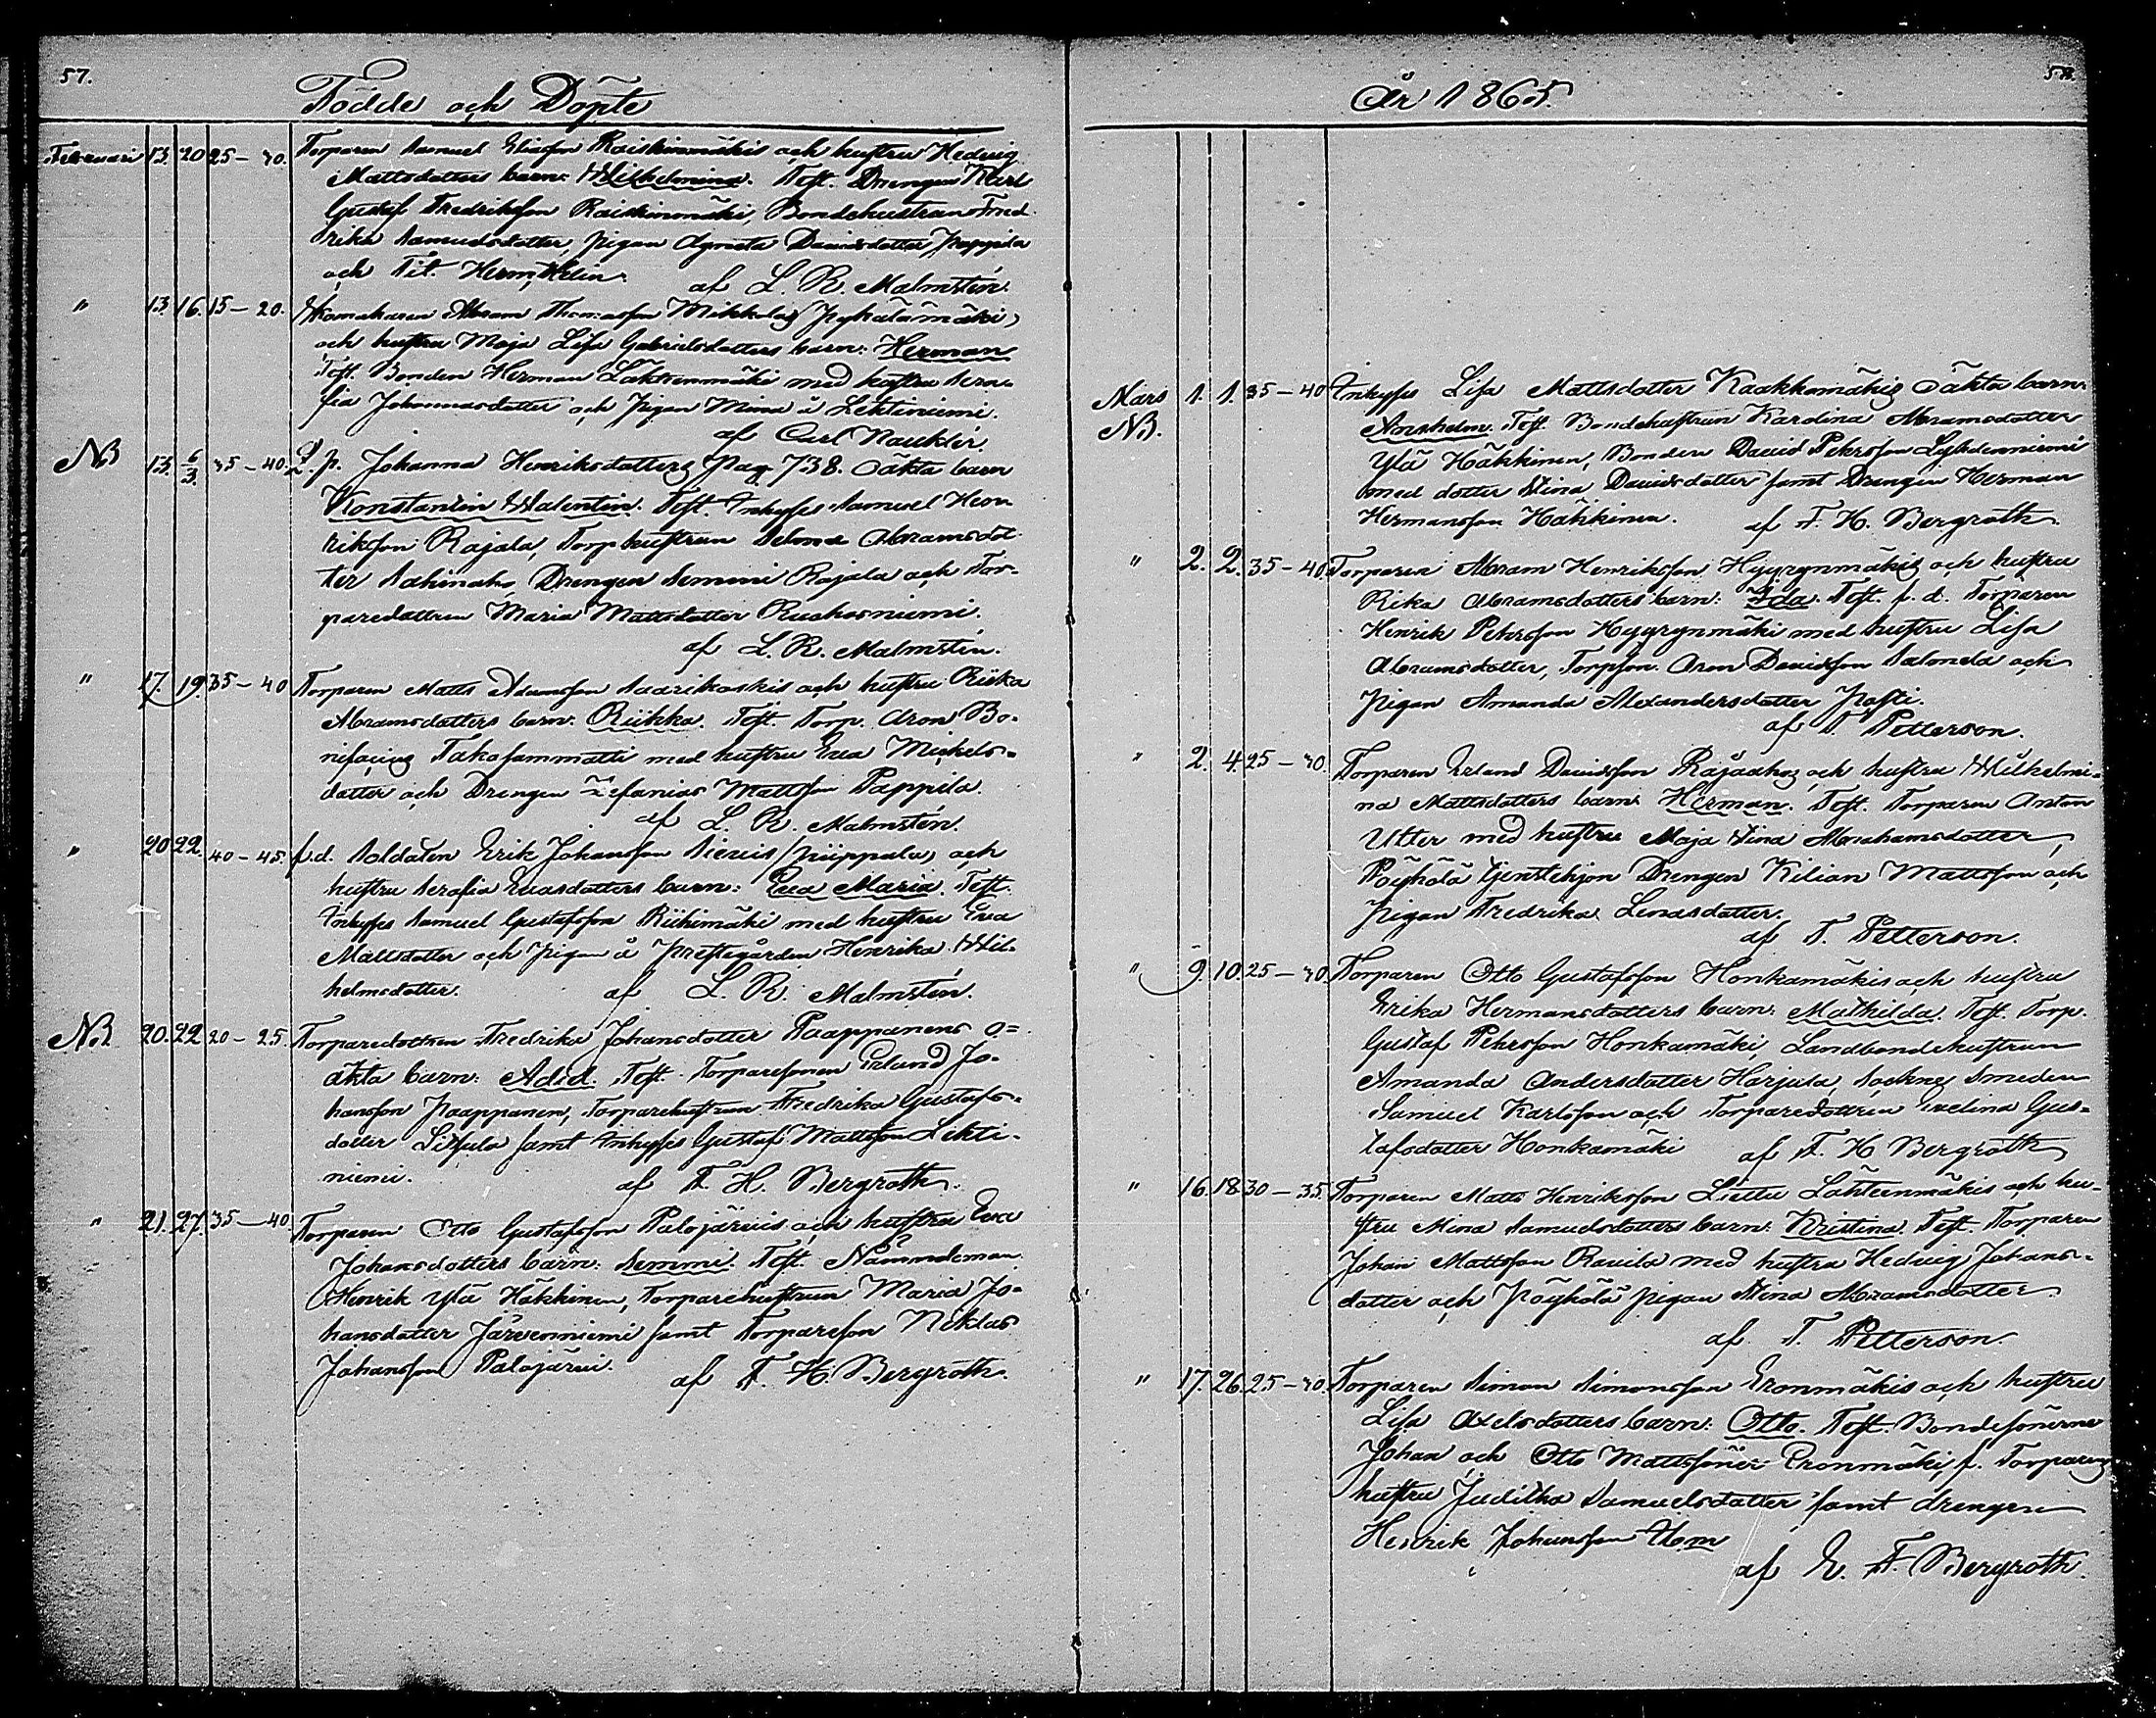 57.
Födde och Döpte
Februari 13. 20 25-30. Torparen Samuel Eliasson Raiskinmäkis och hustru Hedvig
Mattsdotters barn: Wilhelmina. Test. Drengen Karl
Gustaf Fredriksson Raiskinmäki, Bondehustrun Fred-
rika Samuelsdotter, pigan Agneta Davidsdotter Pappila
och Tit. Herm. Helin. af L. R. Malmstén.
" 13. 16. 15-20. Abram Thomasson Mikkolas Pyhälämäki,
och hustru Maja Lisa Gabrielsdotters barn: Herman
Test. Bonden Herman Lakeenmäki med hustru Sera-
fia Johannasdotter och pigan Mina å Lehtiniemi.
af Carl Nauklér.
NB 13. 6/3. 35-40. Q. p. Johanna Henriksdotters pag 738. oäkta barn
Konstantin Walentin. Test. Inhyses Samuel Hen-
riksson Rajala, Torp.hustrun Selma Abramsdot-
ter Sahinaho, Drengen Semmi Rajala och Tor-
paredottren Maria Mattsdotter Ruskoniemi.
af L. R. Malmstén.
" 17. 19. 35-40 Torparen Matts Adamsson Saarikoskis och hustru Riika
Abramsdotters barn: Riikka. Test. Torp. Aron Bo-
nifacius Takasammatti med hustru Eva Mickels-
dotter och Drengen Zefanias Mattsson Pappila.
af L. R. Malmstén.
" 20 22. 40-45. f.d. Soldaten Erik Johansson Sievis (Piippala) och
hustru Serafia Evasdotters barn: Eva Maria. Test.
Inhyses Samuel Gustafsson Riihimäki med hustru Eva
Mattsdotter och pigan å Prestegården Henrika Wil-
helmsdotter. af L. R. Malmstén.
NB. 20. 22 20-25. Torparedottren Fredrika Johansdotter Paappanens o=
äkta barn: Adid. Test. Torparesonen Erland Jo-
hansson Paappanen, Torparehustrun Fredrika Gustafs-
dotter samt Inhyses Gustaf Mattsson Lehti-
niemi. af F. H. Bergroth.
" 21. 27. 35-40. Torparen Otto Gustafsson Palojärvis och hustru Eva
Johansdotters barn: Semmi. Test. Nämndeman
Henrik Ylä Häkkinen, Torparehustrun Maria Jo-
hansdotter Järvenniemi samt Torpareson Niklas
Johansson Palojärvi. af F. H. Bergroth.
58.
År 1865.
Mars 1. 1. 35-40 Inhyses Lisa Mattsdotter Kaakkomäkis oäkta barn:
NB. Anshelm. Test. Bondehustrun Karolina Abramsdotter
Ylä Häkkinen, Bonden David Pehrsson
med dotter Stina Davidsdotter samt Drengen Herman
Hermansson Häkkinen. af F. H. Bergroth.
" 2. 2. 35-40. Torparen Abram Henriksson Hyyrynmäkis och hustru
Rika Abramsdotters barn: Ida. Test. f. d. Torparen
Henrik Pehrsson Hyyrynmäki med hustru Lisa
Abramsdotter, Torp.son. Aron Davidsson Salonda och
pigan Amanda Alexandersdotter Pasti.
af T. Petterson.
" 2. 4. 25-30. Torparen Erland Davidsson Rajaahos och hustru Wilhelmi-
na Mattsdotters barn: Herman. Test. Torparen Anton
Utter med hustru Maja Stina Abrahamsdotter,
Pöyhölä tjenstehjon Drengen Kilian Mattsson och
pigan Fredrika Lenasdotter.
af T. Petterson.
" 9. 10. 25-30. Torparen Otto Gustafsson Honkamäkis och hustru
Erika Hermansdotters barn: Mathilda. Test. Torp.
Gustaf Pehrsson Honkamäki, Landbondehustrun
Amanda Andersdotter Harjula, Sockne Smeden
Samuel Karlsson och Torparedottren Evelina Gus-
tafsdotter Honkamäki af F. H Bergroth
" 16. 18. 30-35. Torparen Matts Henriksson Liettu Lähteenmäkis och hu-
stru Mina Samuelsdotters barn: Kristina. Test. Torparen
Johan Mattsson Ravila med hustru Hedvig Johans-
dotter och Pöyhölä pigan Stina Abramsdotter
af T. Petterson.
" 17. 26. 25-30. Torparen Simon Simonsson Eronmäkis och hustru
Lisa Axelsdotters barn: Otto. Test. Bondesönerne
Johan och Otto Mattssöner Eronmäki, f. Torparens
hustru Juditha Samuelsdotter samt drengen
Henrik Johansson
af E. F. Bergroth.